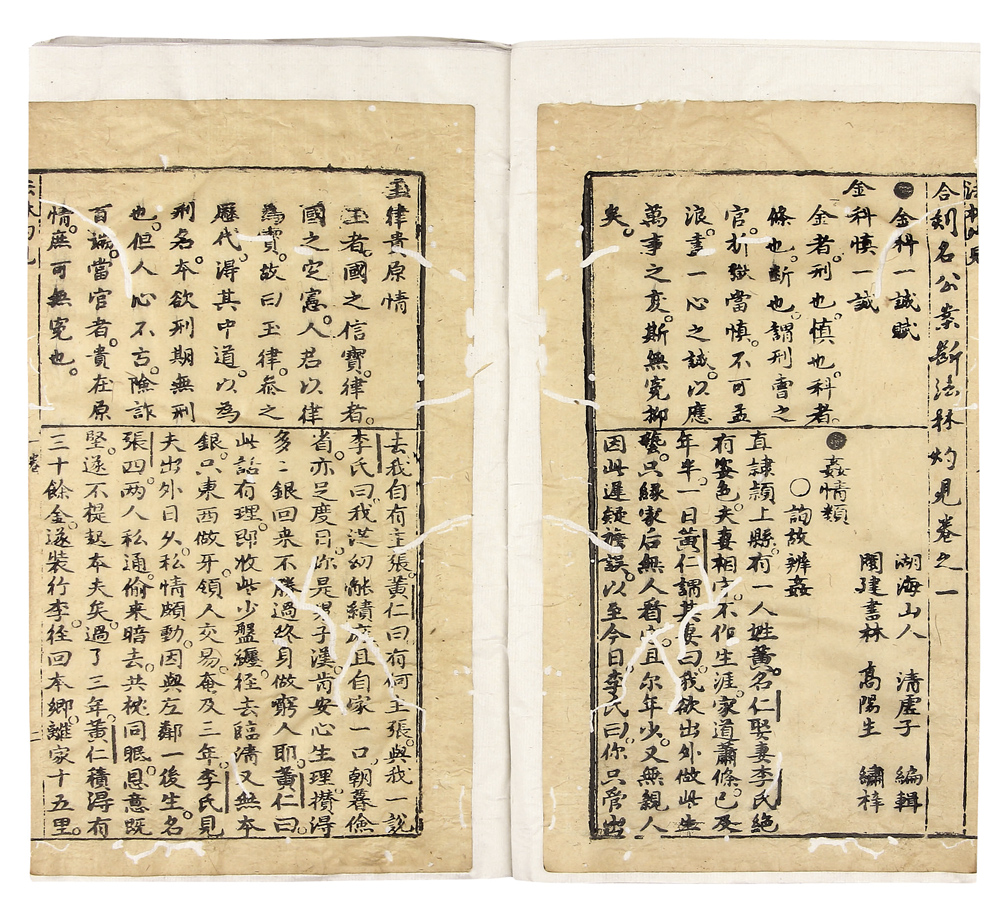 合刻名公案斷法林灼見卷之一
湖海山人　清虛子　編輯
閩建書林　高陽生　繡梓
金科一誠賦
金科慎一誠
金者刑也慎也科者
條也斷也謂刑書之
官折獄當慎不可孟
浪書一心之誠以應
萬事之变斯無寃抑
矣
姦情類
○詢故辨姦
直隷頴上縣有一人姓黃名仁娶妻李氏絶
有姿色夫妻相守不作生涯家道蕭條已及
年半一日黃仁謂其妻曰我欲出外做此生
藝只縁家后無人看守且尔年少又無親人
因此遲疑擔誤以至今日李氏曰你只管出
玉律貴原情
玉者國之信寶律者
國之安憲人君以律
爲寳故曰玉律叅之
歷代得其中道以為
刑名本欲刑期無刑
也但人心不古險詐
百端當官者貴在原
情庶可無寃也
去我自有主張黃仁曰有何主張與我一說
李氏曰我從幼能績麻且自家一口朝暮儉
省亦足度日你是男子漢肯安心生理攅得
多〻銀回來不勝過終身做窮人耶黃仁曰
此話有理即收此少盤纏徑去臨清又無本
銀只東西做牙領人交易奄及三年李氏見
夫出外日久私情頗動因與左鄰一後生名
張四两人私通偷來暗去共枕同眠恩意既
堅遂不提起本夫矣過了三年黃仁積得有
三十餘金遂裝行李徑回本鄉離家十五里
一卷